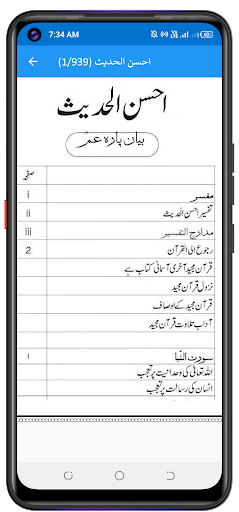 7:34 AM
60
احسن الحدیث (1/939)
احسن الحدیث
بیان پارہ عم
صفحہ
مفسر i
تفسیر احسن الحدیث ii
مدارج التفسیر iii
رجوع الی القرآن 2
قرآن مجید آخری آسمانی کتاب ہے
نزول قرآن مجید
قرآن مجید کے اوصاف
آداب تلاوت قرآن مجید
سورت النبأ ١
اللہ تعالیٰ کی وحدانیت پر تعجب
انسان کی رسالت پر تعجب